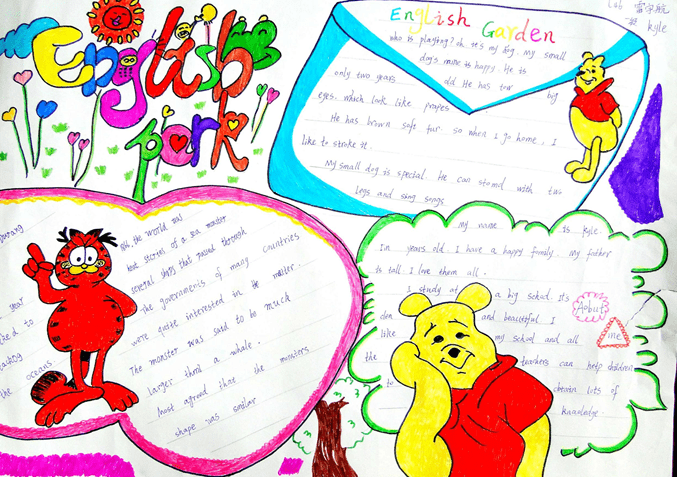 English
park
English Garden
kyle
who is playing? oh it's my dog. My small
dog's name is happy. He is
only two years old He has tow big
eyes. which look like
He has brown soft fur. so when I go home, I
like to stroke it.
My small dog is special. He can stand with
legs and sing songs
the world was
stories of a sea monster
several ships that passed through
The governments of many countries
were quite interested in the matter.
The monster was said to be much
larger than a whale.
Most agreed that the monsters
shape was similar
year
to
the oceans.
my name is kyle.
I'm years old. I have a happy family. My father
is tall. I love them all.
I study at a big school. It's
den and beautiful. I
like my school and all
the teachers can help children
to obtain lots of
knowledge.
Aobut
me